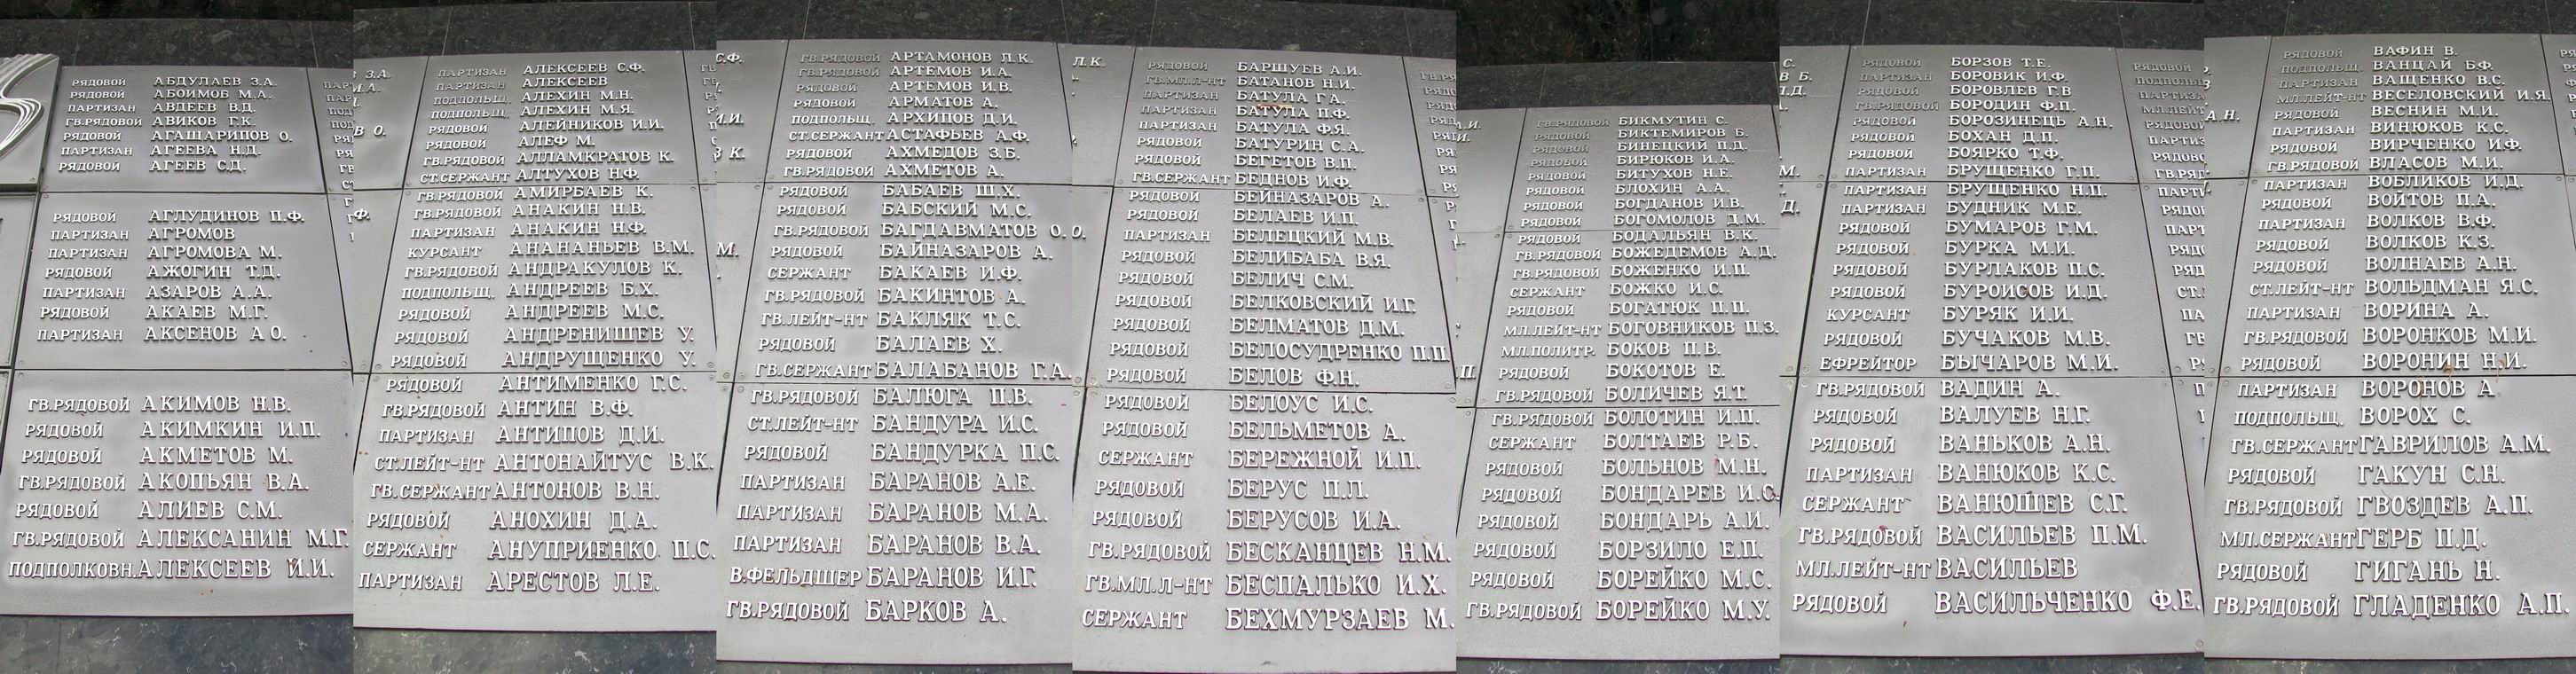 РЯДОВОЙ АБДУЛАЕВ З.А.
РЯДОВОЙ АБОИМОВ М.А.
ПАРТИЗАН АВДЕЕВ В.Д.
ГВ.РЯДОВОЙ АВИКОВ Г.К.
РЯДОВОЙ АГАШАРИПОВ О.
ПАРТИЗАН АГЕЕВА Н.Д.
РЯДОВОЙ АГЕЕВ С.Д.
РЯДОВОЙ АГЛУДИНОВ П.Ф.
ПАРТИЗАН АГРОМОВ
ПАРТИЗАН АГРОМОВА М.
РЯДОВОЙ АЖОГИН Т.Д.
ПАРТИЗАН АЗАРОВ А.А.
РЯДОВОЙ АКАЕВ М.Г.
ПАРТИЗАН АКСЕНОВ А О.
ГВ.РЯДОВОЙ АКИМОВ Н.В.
РЯДОВОЙ АКИМКИН И.П.
РЯДОВОЙ АКМЕТОВ М.
ГВ.РЯДОВОЙ АКОПЬЯН В.А.
РЯДОВОЙ АЛИЕВ С.М.
ГВ.РЯДОВОЙ АЛЕКСАНИН М.Г.
ПОДПОЛКОВН. АЛЕКСЕЕВ И.И.
ПАРТИЗАН АЛЕКСЕЕВ С.Ф.
ПАРТИЗАН АЛЕКСЕЕВ
ПОДПОЛЬЩ. АЛЕХИН М.Н.
ПОДПОЛЬЩ. АЛЕХИН М.Я.
РЯДОВОЙ АЛЕЙНИКОВ И.И.
РЯДОВОЙ АЛЕФ М.
ГВ.РЯДОВОЙ АЛЛАМКРАТОВ К.
СТ.СЕРЖАНТ АЛТУХОВ Н.Ф.
РЯДОВОЙ АМИРБАЕВ К.
ГВ.РЯДОВОЙ АНАКИН Н.В.
ПАРТИЗАН АНАКИН Н.Ф.
КУРСАНТ АНАНАНЬЕВ В.М.
ГВ.РЯДОВОЙ АНДРАКУЛОВ К.
ПОДПОЛЬЩ. АНДРЕЕВ Б.Х.
РЯДОВОЙ АНДРЕЕВ М.С.
РЯДОВОЙ АНДРЕНИШЕВ У.
РЯДОВОЙ АНДРУЩЕНКО У.
РЯДОВОЙ АНТИМЕНКО Г.С.
ГВ.РЯДОВОЙ АНТИН В.Ф.
ПАРТИЗАН АНТИПОВ Д.И.
СТ.ЛЕЙТ-НТ АНТОНАЙТУС В.К.
ГВ.СЕРЖАНТ АНТОНОВ В.Н.
РЯДОВОЙ АНОХИН Д.А.
СЕРЖАНТ АНУПРИЕНКО П.С.
ПАРТИЗАН АРЕСТОВ Л.Е.
ГВ.РЯДОВОЙ АРТАМОНОВ Л.К.
ГВ.РЯДОВОЙ АРТЕМОВ И.А.
РЯДОВОЙ АРТЕМОВ И.В.
РЯДОВОЙ АРМАТОВ А.
ПОДПОЛЬЩ. АРХИПОВ Д.И.
СТ.СЕРЖАНТ АСТАФЬЕВ А.Ф.
РЯДОВОЙ АХМЕДОВ З.Б.
ГВ.РЯДОВОЙ АХМЕТОВ А.
РЯДОВОЙ БАБАЕВ Ш.Х.
РЯДОВОЙ БАБСКИЙ М.С.
ГВ.РЯДОВОЙ БАГДАВМАТОВ О.
РЯДОВОЙ БАЙНАЗАРОВ А.
СЕРЖАНТ БАКАЕВ И.Ф.
ГВ.РЯДОВОЙ БАКИНТОВ А.
ГВ.ЛЕЙТ-НТ БАКЛЯК Т.С.
РЯДОВОЙ БАЛАЕВ Х.
ГВ.СЕРЖАНТ БАЛАБАНОВ Г.А.
ГВ.РЯДОВОЙ БАЛЮГА П.В.
СТ.ЛЕЙТ-НТ БАНДУРА И.С.
РЯДОВОЙ БАНДУРКА П.С.
ПАРТИЗАН БАРАНОВ А.Е.
ПАРТИЗАН БАРАНОВ М.А.
ПАРТИЗАН БАРАНОВ В.А.
В.ФЕЛЬДШЕР БАРАНОВ И.Г.
ГВ.РЯДОВОЙ БАРКОВ А.
РЯДОВОЙ БАРШУЕВ А.И.
ГВ.МЛ.Л-НТ БАТАНОВ Н.И.
ПАРТИЗАН БАТУЛА Г.А.
ПАРТИЗАН БАТУЛА П.Ф.
ПАРТИЗАН БАТУЛА Ф.Я.
РЯДОВОЙ БАТУРИН С.А.
РЯДОВОЙ БЕГЕТОВ В.П.
ГВ.СЕРЖАНТ БЕДНОВ И.Ф.
РЯДОВОЙ БЕЙНАЗАРОВ А.
РЯДОВОЙ БЕЛАЕВ И.П.
ПАРТИЗАН БЕЛЕЦКИЙ М.В.
РЯДОВОЙ БЕЛИБАБА В.Я.
РЯДОВОЙ БЕЛИЧ С.М.
РЯДОВОЙ БЕЛКОВСКИЙ И.Г.
РЯДОВОЙ БЕЛМАТОВ Д.М.
РЯДОВОЙ БЕЛОСУДРЕНКО П.П.
РЯДОВОЙ БЕЛОВ Ф.Н.
РЯДОВОЙ БЕЛОУС И.С.
РЯДОВОЙ БЕЛЬМЕТОВ А.
СЕРЖАНТ БЕРЕЖНОЙ И.П.
РЯДОВОЙ БЕРУС П.Л.
РЯДОВОЙ БЕРУСОВ И.А.
ГВ.РЯДОВОЙ БЕСКАНЦЕВ Н.М.
ГВ.МЛ.Л-НТ БЕСПАЛЬКО И.Х.
СЕРЖАНТ БЕХМУРЗАЕВ М.
ГВ.РЯДОВОЙ БИКМУТИН С.
РЯДОВОЙ БИКТЕМИРОВ Б.
РЯДОВОЙ БИНЕЦКИЙ П.Д.
РЯДОВОЙ БИРЮКОВ И.А.
РЯДОВОЙ БИТУХОВ Н.Е.
РЯДОВОЙ БЛОХИН А.А.
РЯДОВОЙ БОГДАНОВ И.В.
РЯДОВОЙ БОГОМОЛОВ Д.М.
РЯДОВОЙ БОДАЛЬЯН В.К.
ГВ.РЯДОВОЙ БОЖЕДЕМОВ А.Д.
ГВ.РЯДОВОЙ БОЖЕНКО И.П.
СЕРЖАНТ БОЖКО И.С.
РЯДОВОЙ БОГАТЮК П.П.
МЛ.ЛЕЙТ-НТ БОГОВНИКОВ П.З.
МЛ.ПОЛИТР. БОКОВ П.В.
РЯДОВОЙ БОКОТОВ Е.
ГВ.РЯДОВОЙ БОЛИЧЕВ Я.Т.
ГВ.РЯДОВОЙ БОЛОТИН И.П.
СЕРЖАНТ БОЛТАЕВ Р.Б.
РЯДОВОЙ БОЛЬНОВ М.Н.
РЯДОВОЙ БОНДАРЕВ И.С.
РЯДОВОЙ БОНДАРЬ А.И.
РЯДОВОЙ БОРЗИЛО Е.П.
РЯДОВОЙ БОРЕЙКО М.С.
ГВ.РЯДОВОЙ БОРЕЙКО М.У.
РЯДОВОЙ БОРЗОВ Т.Е.
ПАРТИЗАН БОРОВИК И.Ф.
РЯДОВОЙ БОРОВЛЕВ Г.В
ГВ.РЯДОВОЙ БОРОДИН Ф.П.
РЯДОВОЙ БОРОЗИНЕЦЬ А.Н.
РЯДОВОЙ БОХАН Д.П.
РЯДОВОЙ БОЯРКО Т.Ф.
ПАРТИЗАН БРУЩЕНКО Г.П.
ПАРТИЗАН БРУЩЕНКО Н.П.
ПАРТИЗАН БУДНИК М.Е.
РЯДОВОЙ БУМАРОВ Г.М.
РЯДОВОЙ БУРКА М.И.
РЯДОВОЙ БУРЛАКОВ П.С.
РЯДОВОЙ БУРОИСОВ И.Д.
КУРСАНТ БУРЯК И.И.
РЯДОВОЙ БУЧАКОВ М.В.
ЕФРЕЙТОР БЫЧАРОВ М.И.
ГВ.РЯДОВОЙ ВАДИН А.
РЯДОВОЙ ВАЛУЕВ Н.Г.
РЯДОВОЙ ВАНЬКОВ А.Н.
ПАРТИЗАН ВАНЮКОВ К.С.
СЕРЖАНТ ВАНЮШЕВ С.Г.
ГВ.РЯДОВОЙ ВАСИЛЬЕВ П.М.
МЛ.ЛЕЙТ-НТ ВАСИЛЬЕВ
РЯДОВОЙ ВАСИЛЬЧЕНКО Ф.Е.
РЯДОВОЙ ВАФИН В.
ПОДПОЛЬЩ. ВАНЦАЙ Б.Ф.
ПАРТИЗАН ВАЩЕНКО В.С.
МЛ.ЛЕЙТ-НТ ВЕСЕЛОВСКИЙ И.Я.
РЯДОВОЙ ВЕСНИН М.И.
ПАРТИЗАН ВИНЮКОВ К.С.
РЯДОВОЙ ВИРЧЕНКО И.Ф.
ГВ.РЯДОВОЙ ВЛАСОВ М.И.
ПАРТИЗАН ВОБЛИКОВ И.Д.
РЯДОВОЙ ВОЙТОВ П.А.
ПАРТИЗАН ВОЛКОВ В.Ф.
РЯДОВОЙ ВОЛКОВ К.З.
РЯДОВОЙ ВОЛНАЕВ А.Н.
СТ.ЛЕЙТ-НТ ВОЛЬДМАН Я.С.
ПАРТИЗАН ВОРИНА А.
ГВ.РЯДОВОЙ ВОРОНКОВ М.И.
РЯДОВОЙ ВОРОНИН Н.И.
ПАРТИЗАН ВОРОНОВ А
ПОДПОЛЬЩ. ВОРОХ С.
ГВ.СЕРЖАНТ ГАВРИЛОВ А.М.
РЯДОВОЙ ГАКУН С.Н.
ГВ.РЯДОВОЙ ГВОЗДЕВ А.П.
МЛ.СЕРЖАНТ ГЕРБ П.Д.
РЯДОВОЙ ГИГАНЬ Н.
ГВ.РЯДОВОЙ ГЛАДЕНКО А.П.